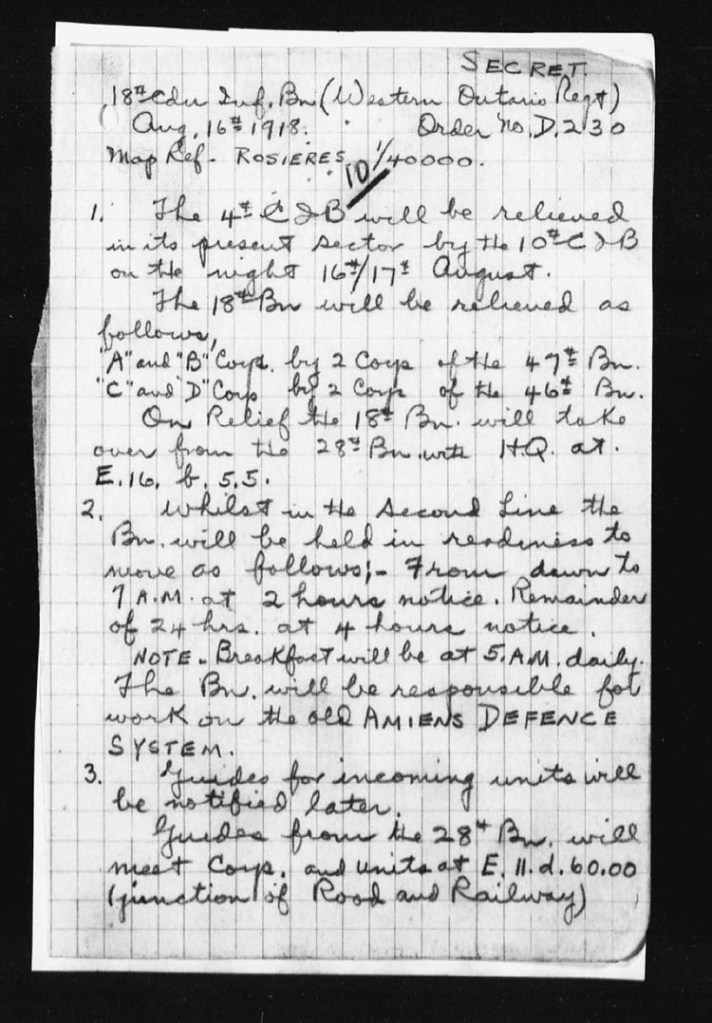 SECRET.
18th Cdn Inf. Bn (Western Ontario Regt)
Aug. 16th 1918. Order No. D.230
Map Ref - ROSIERES 1/40000.
10
1. The 4th C I B will be relieved
in its present sector by the 10th C I B
on the night 16th/17th August.
The 18th Bn will be relieved as
follows,
"A" and "B" Coys. by 2 Coys of the 47th Bn.
"C" and "D" Coys by 2 Coys of the 46th Bn.
On Relief the 18th Bn. will take
over from the 28th Bn. with H.Q. at.
E.16. b. 5.5.
2. Whilst in the Second Line the
Bn. will be held in readiness to
move as follows;- From dawn to
7 A.M. at 2 hours notice. Remainder
of 24 hrs. at 4 hours notice.
NOTE - Breakfast will be at 5.A.M. daily.
The Bn. will be responsible for
work on the old AMIENS DEFENCE
SYSTEM.
3. Guides for incoming units will
be notified later.
Guides from the 28th Bn. will
meet Coys. and units at E.11.d.60.00
(junction of Road and Railway)